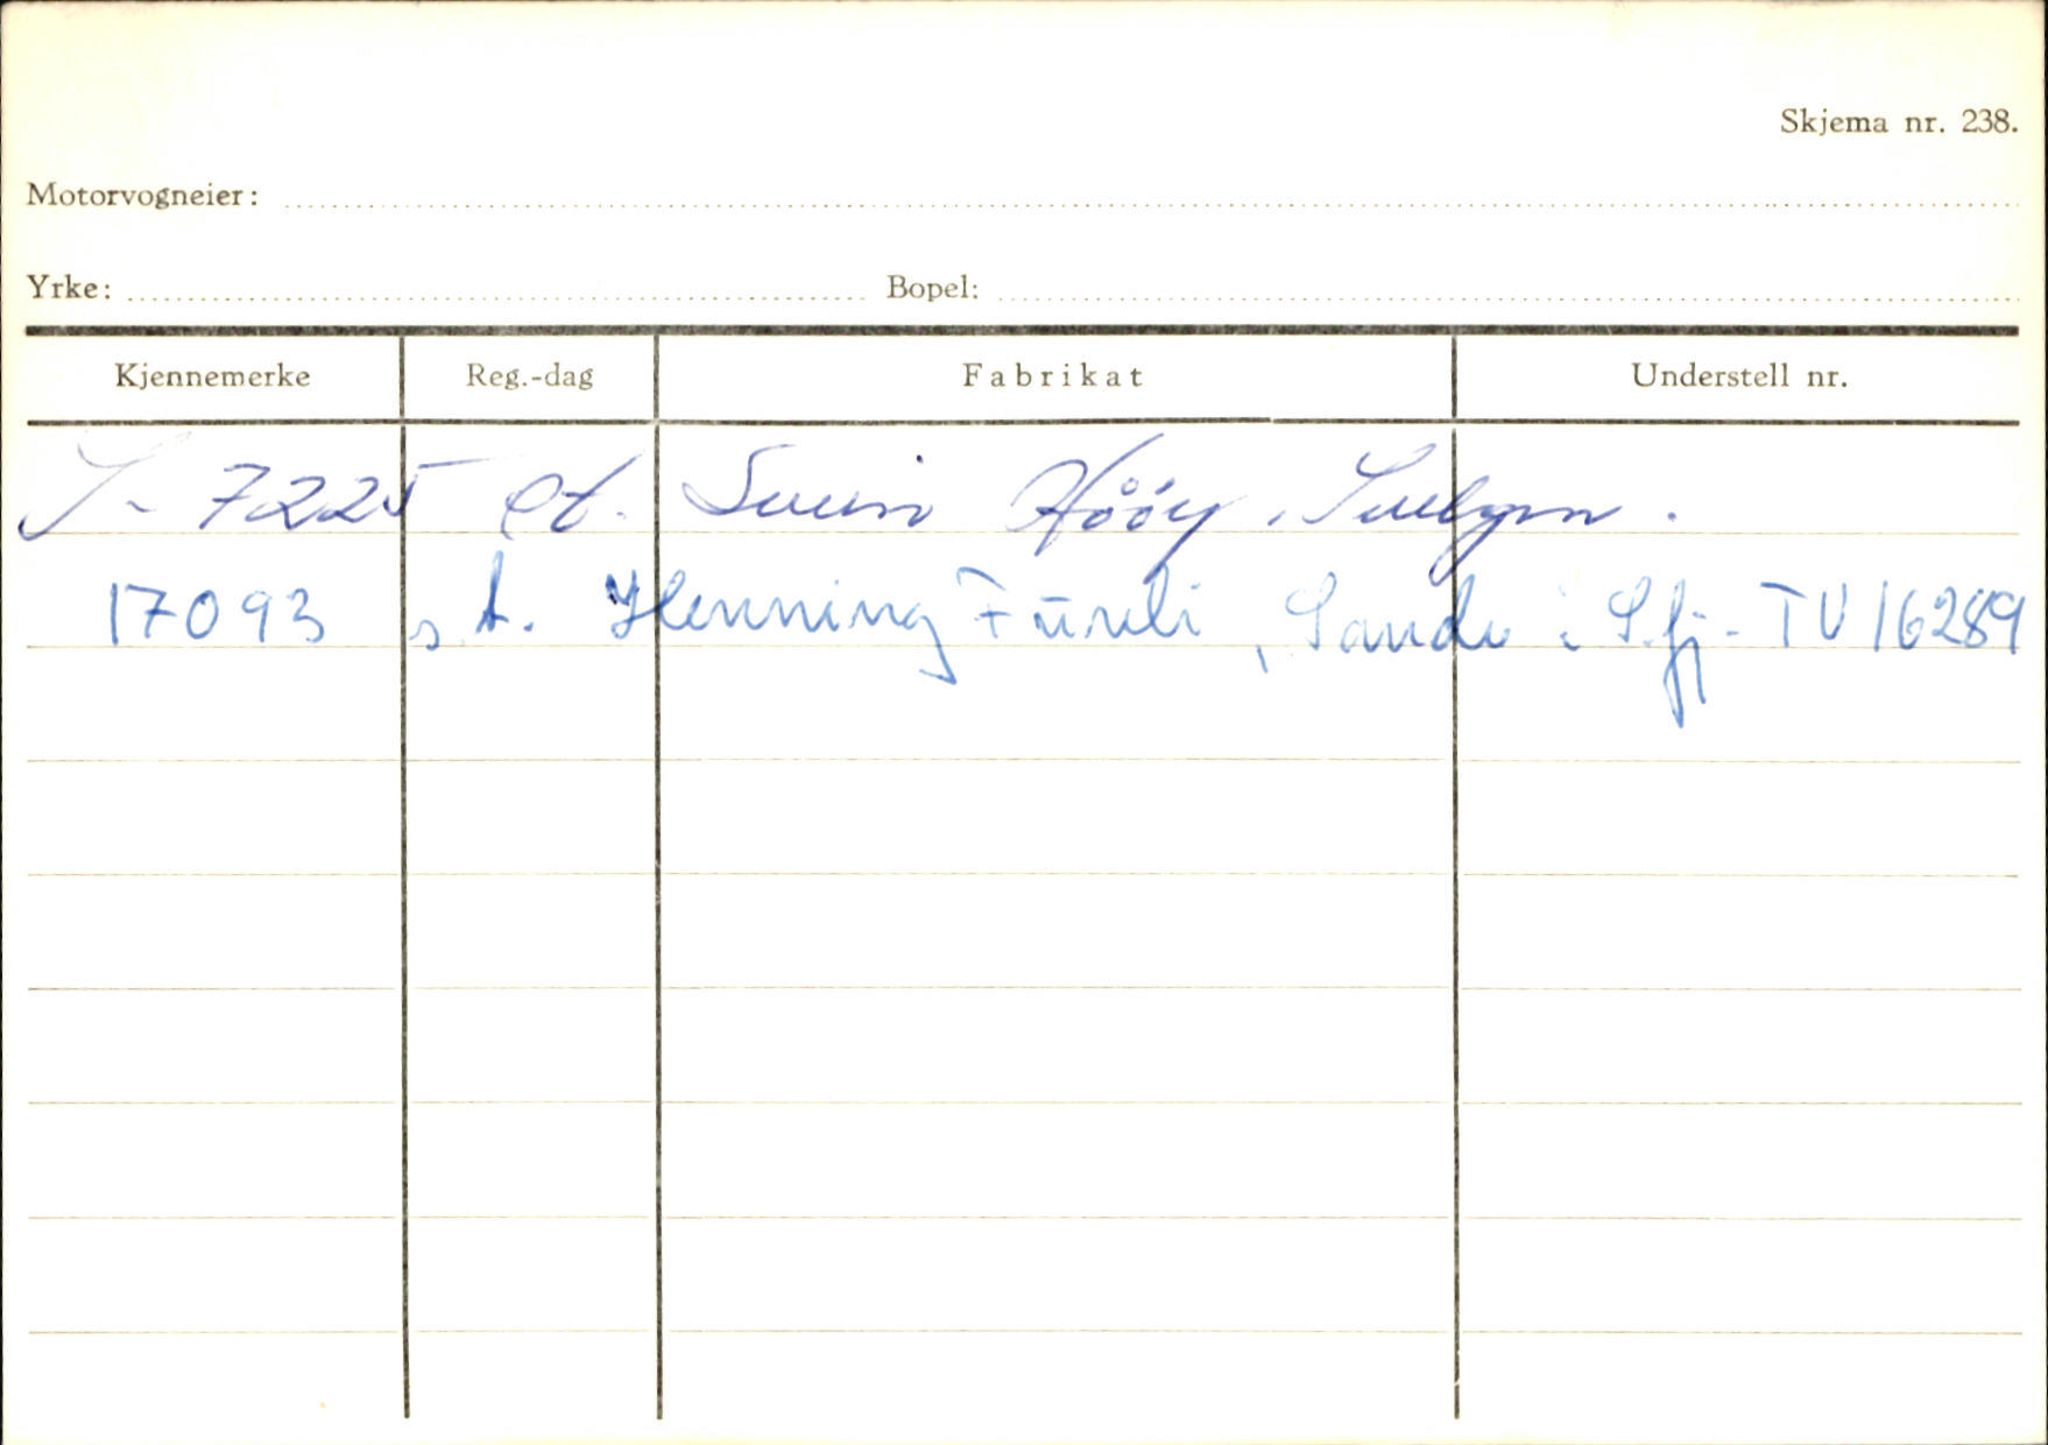 Skjema nr. 238.
Motorvogneier:
Yrke: Bopel:
Kjennemerke Reg.-dag Fabrikat Understell nr.
S-7225 et. Svein Høøy, Svelgen.
17093 s.t. Henning Furuli, Sande i S.fj. - TV 16289